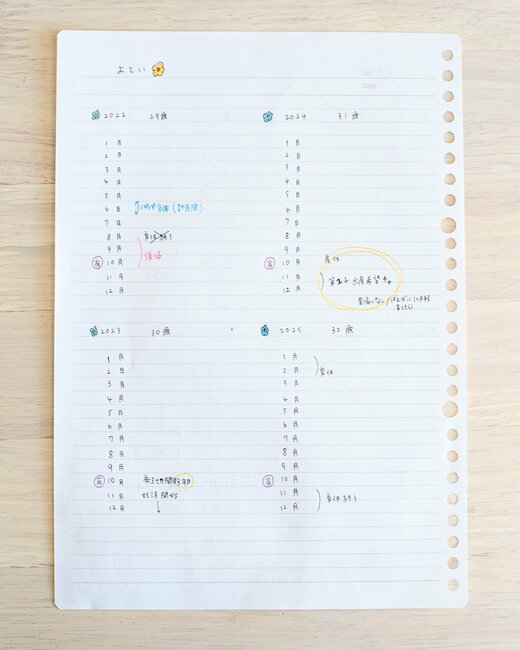 よてい
No.
Date
2022 29歳
1月
2月
3月
4月
5月
6月
7月
8月
9月
復帰
有 10月
11月
12月
2024 31歳
1月
2月
3月
4月
5月
6月
7月
8月
9月
産休
有 10月
11月 出産希望
12月
2023 30歳
1月
2月
3月
4月
5月
6月
7月
8月
9月
有 10月
11月 妊活開始
12月
2025 32歳
1月
2月 育休
3月
4月
5月
6月
7月
8月
9月
有 10月
11月 育休終了
12月